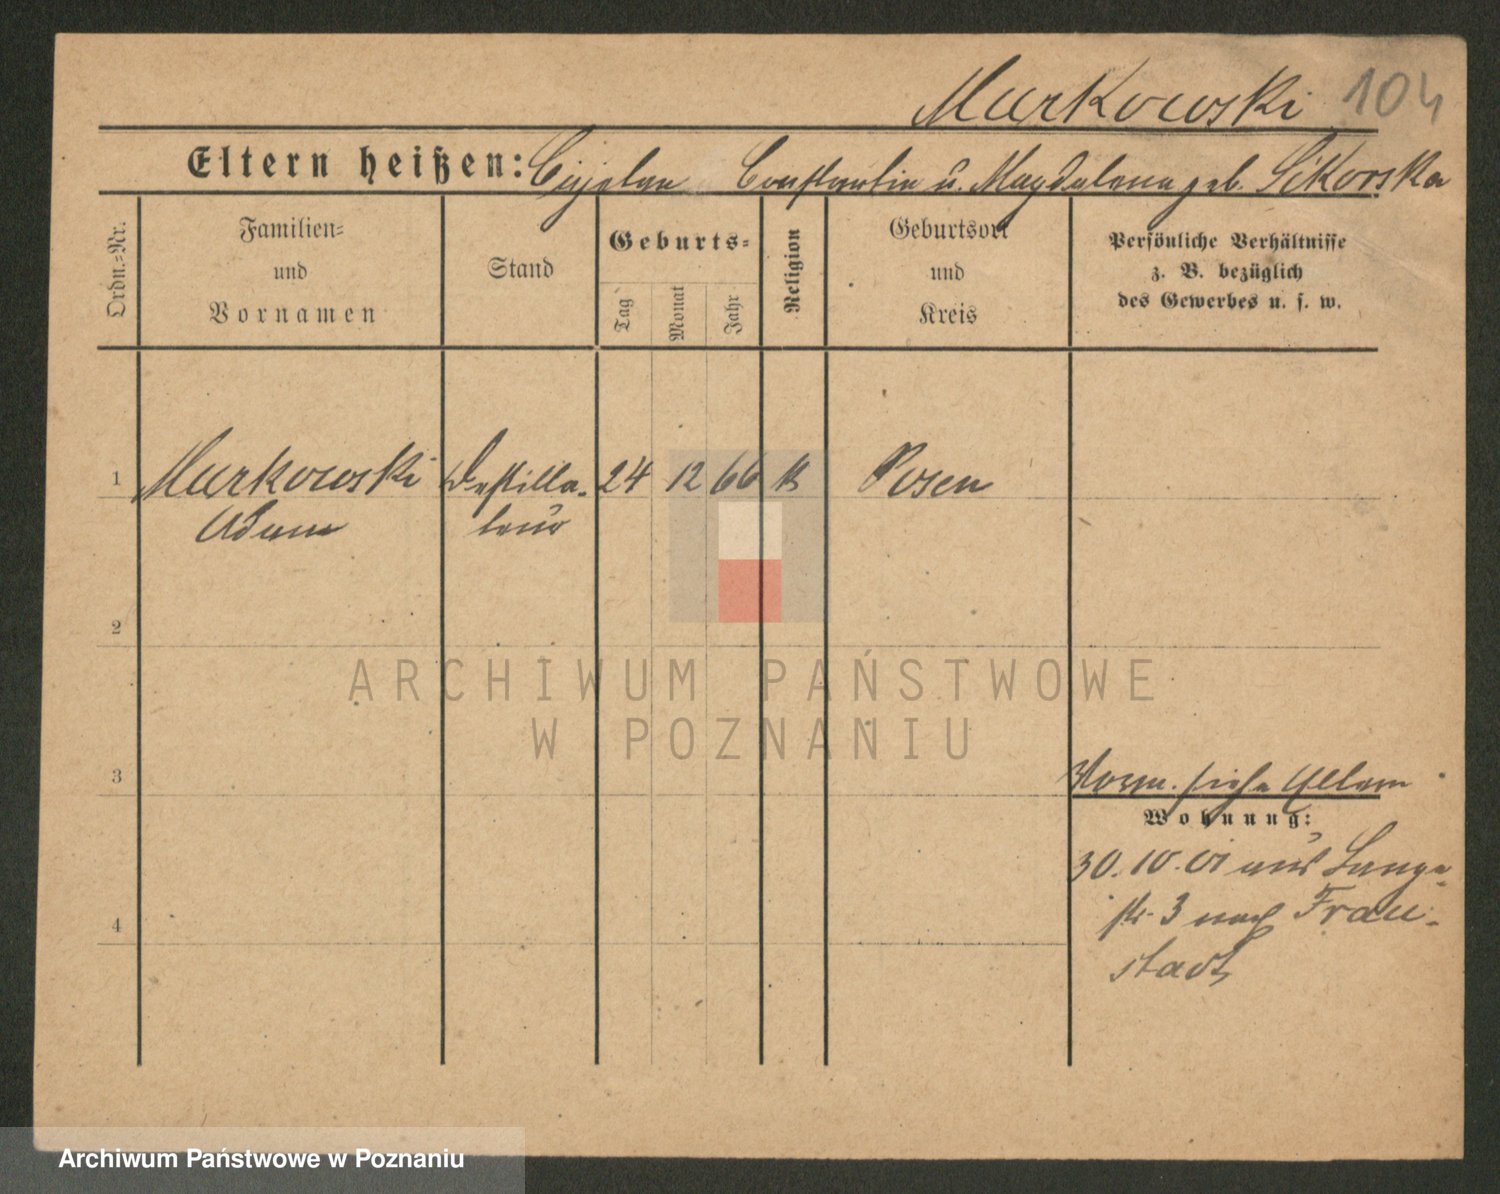 Markowski 104
Eltern heißen: Constantin u. Magdalena geb. Sikorska
Ordn.=Nr.
Familien=
und
Vornamen
Stand
Geburts=
Tag
Monat
Jahr
Religion
Geburtsort
und
Kreis
Persönliche Verhältnisse
z. B. bezüglich
des Gewerbes u. s. w.
1 Markowski Destilla- 24 12 66 k Posen
Adam teur
2
ARCHIWUM PAŃSTWOWE
W POZNANIU
3
siehe Eltern
Wohnung:
30. 10. 01 aus Lange-
str. 3 nach Frau-
4
stadt
Archiwum Państwowe w Poznaniu